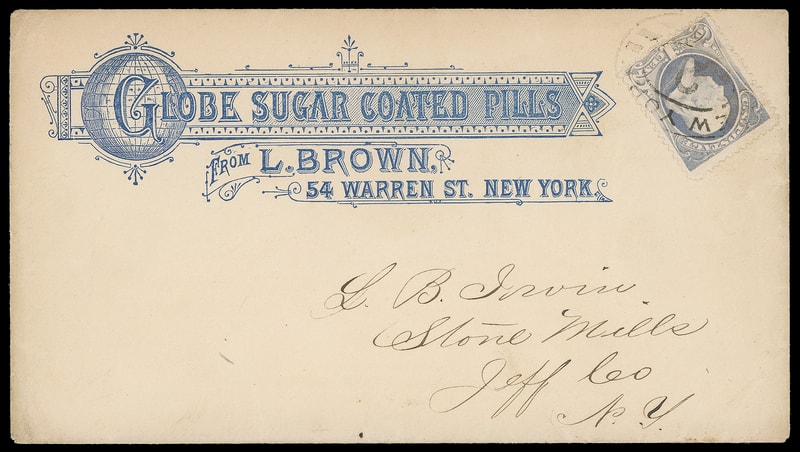 GLOBE SUGAR COATED PILLS
FROM L. BROWN.
54 WARREN ST. NEW YORK.
L. B. Irvin
Stone Mills
Jeff Co
N. Y.